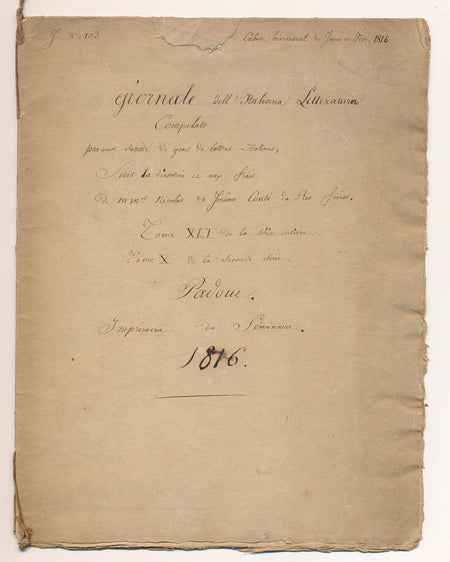 J. 8° 103
Cahier bimensuel de Janv. Fév. 1816
giornale dell' Italiana Letteratura
Compilato
par une société de gens de lettres Italiens,
Sous la direction et aux frais
de mm. Nicolas & Jérôme Conti da Rio frères.
Tome XLI de la série entière.
Tome X de la seconde série.
Padoue.
Imprimerie du Séminaire.
1816.